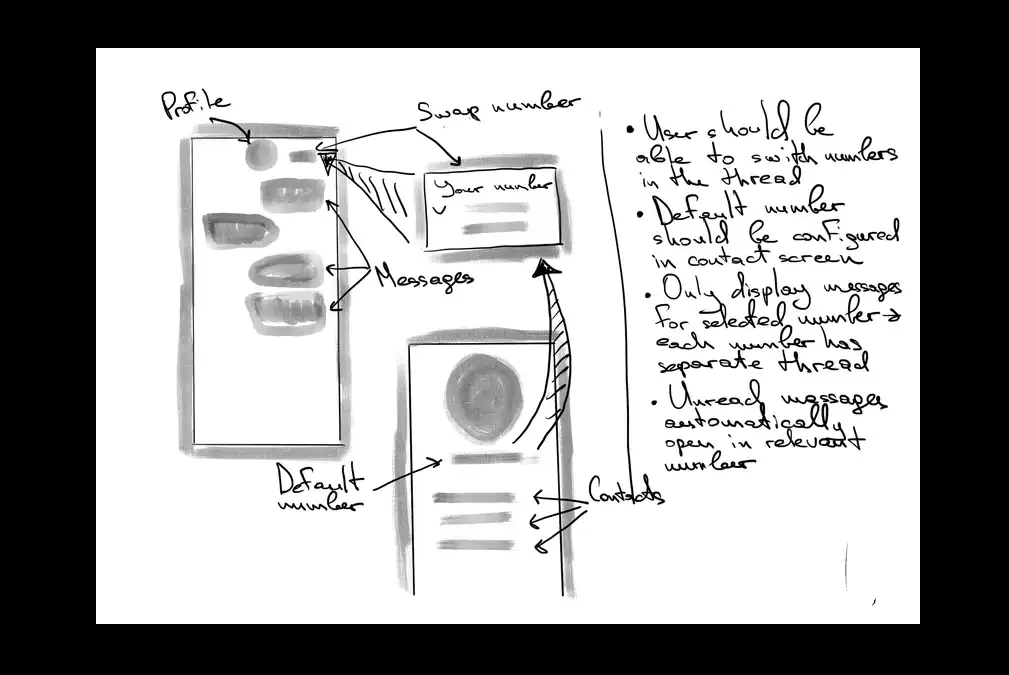 Profile
Swap number
Your number
Messages
Default
number
Contacts
• User should be
able to swith numbers
in the thread
• Default number
should be configured
in contact screen
• Only display messages
for selected number→
each number has
separate thread
• Unread messages
automatically
open in relevant
number